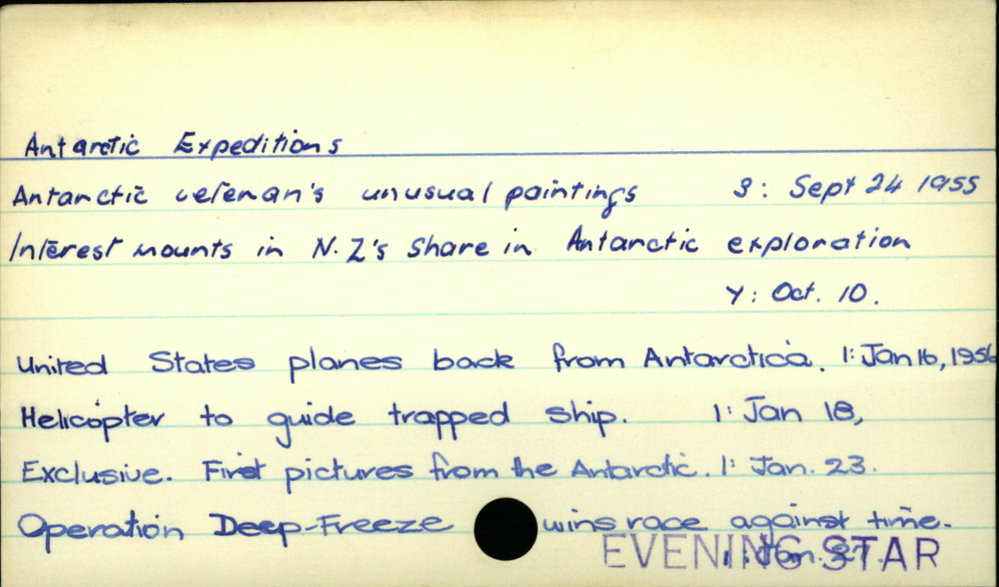 Antarctic Expeditions
Antarctic veteran's unusual paintings 3: Sept 24 1955
Interest mounts in N.Z's share in Antarctic exploration
Y: Oct. 10.
United States planes back from Antarctica. 1: Jan 16, 1956
Helicopter to guide trapped ship. 1: Jan 18,
Exclusive. First pictures from the Antarctic. 1: Jan. 23.
Operation Deep-Freeze wins race against time.
1: Jan. 27.
EVENING STAR